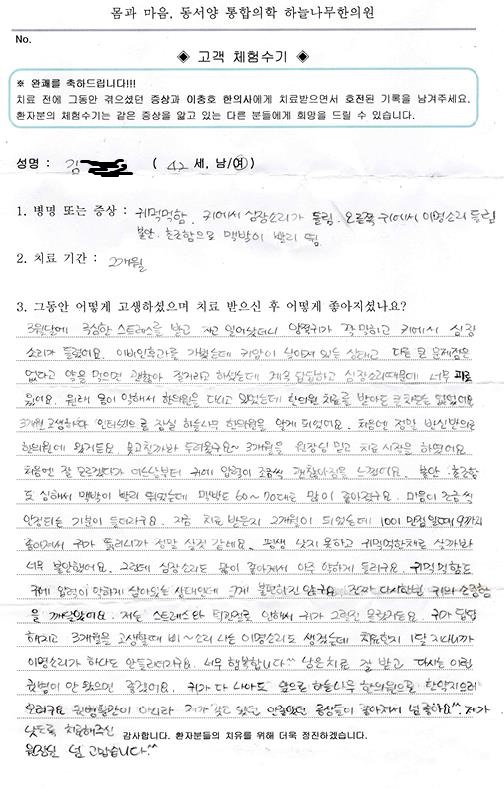 몸과 마음, 동서양 통합의학 하늘나무한의원
No.
◈ 고객 체험수기 ◈
※ 완쾌를 축하드립니다!!!
치료 전에 그동안 겪으셨던 증상과 이충호 한의사에게 치료받으면서 호전된 기록을 남겨주세요.
환자분의 체험수기는 같은 증상을 앓고 있는 다른 분들에게 희망을 드릴 수 있습니다.
성명 : 김 ( 42 세, 남/여 )
1. 병명 또는 증상 : 귀먹먹함. 귀에서 심장소리가 들림. 오른쪽 귀에서 이명소리 들림
불안. 초조함으로 맥박이 빨리 뜀.
2. 치료 기간 : 2개월
3. 그동안 어떻게 고생하셨으며 치료 받으신 후 어떻게 좋아지셨나요?
3월달에 극심한 스트레스를 받고 자고 일어났더니 양쪽귀가 꽉 막히고 귀에서 심장
소리가 들렸어요. 이비인후과를 가봤는데 귀압이 낮아져 있는 상태고 다른 큰 문제점은
없다고 약을 먹으면 괜찮아 질거라고 하셨는데 계속 답답하고 심장소리때문에 너무 괴로
웠어요. 원래 몸이 약해서 한의원을 다니고 있었는데 한의원 치료를 받아도 큰 차도는 없었어요
3개월 고생하다 인터넷으로 잠실 하늘나무 한의원을 알게 되었어요. 처음엔 정말 반신반의로
한의원에 왔거든요 못고칠까봐 두려웠구요~ 3개월을 원장님 믿고 치료 시작을 하였어요
처음엔 잘 모르겠다가 어느날부터 귀에 압력이 조금씩 괜찮아짐을 느꼈어요. 불안. 초조함
도 심해서 맥박이 빨리 뛰었는데 맥박도 60~70대로 많이 좋아졌구요. 마음이 조금씩
안정되는 기분이 들더라구요. 지금 치료 받은지 2개월이 되었는데 100이 만점일때 9까지
좋아져서 귀가 뚫리니까 정말 살것 같네요. 평생 낫지 못하고 귀먹먹한채로 살까봐
너무 불안했어요. 그런데 심장소리도 많이 좋아져서 아주 약하게 들리구요. 귀먹먹함도
귀에 압력이 약하게 남아있는 상태인데 크게 불편하진 않구요. 진짜 다시한번 귀의 소중함
을 깨달았어요. 저는 스트레스와 턱관절로 인해서 귀가 그런진 몰랐거든요. 귀가 답답
해지고 3개월을 고생할때 삐~소리 나는 이명소리도 생겼는데 치료한지 1달 지나니까
이명소리가 하나도 안들리더라구요. 너무 행복합니다^^ 남은치료 잘 받고 다시는 이런
귓병이 안 왔으면 좋겠어요. 귀가 다 나아도 앞으로 하늘나무 한의원으로 한약지으러
오려구요 귓병뿐만이 아니라 제가 갖고 있던 안좋았던 증상들이 좋아져서 넘 좋아요^^. 제가
낫도록 치료해주신 감사합니다. 환자분들의 치유를 위해 더욱 정진하겠습니다.
원장님 넘 고맙습니다^^